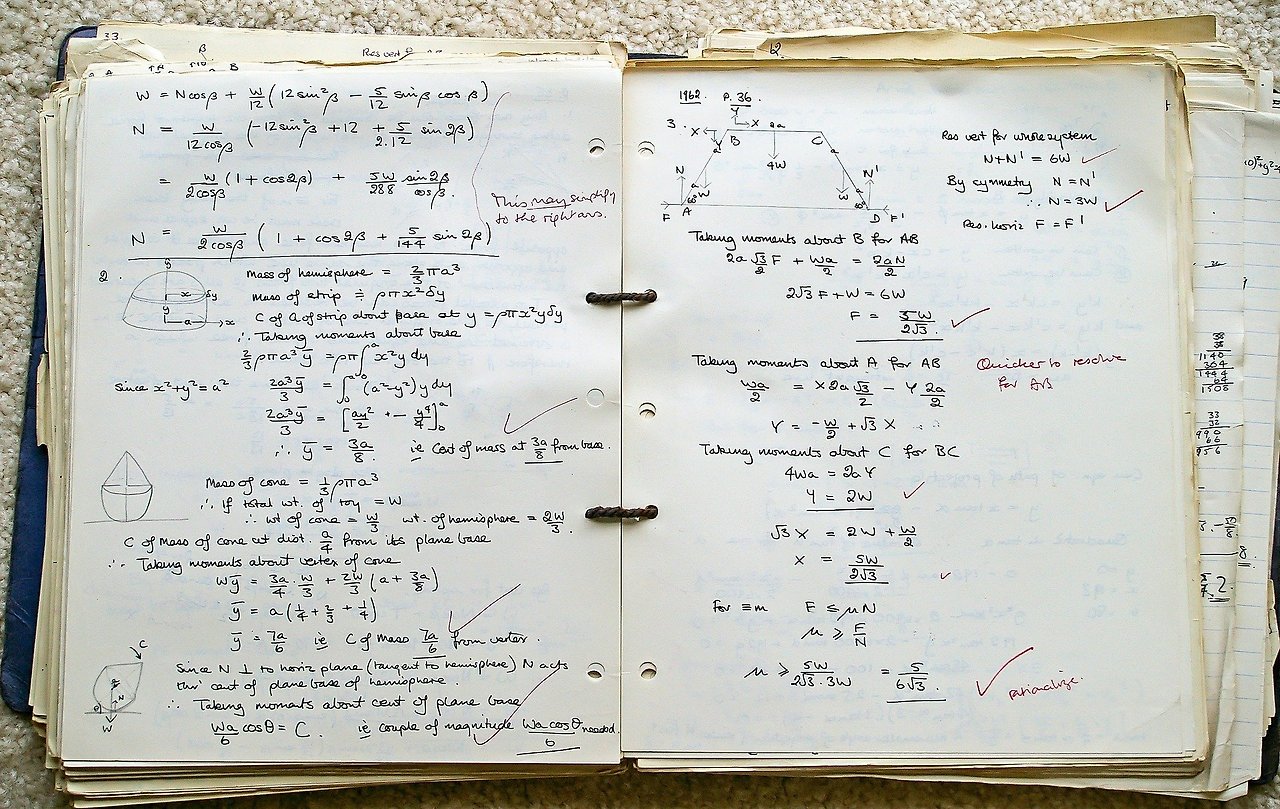 33.
β
Res vert
B
W = N cosβ + W/12 (12 sin²β − 5/12 sinβ cosβ)
N = W/12cosβ (−12 sin²β + 12 + 5/2.12 sin 2β)
= W/2cosβ (1 + cos2β) + 5W/288 sin2β/cosβ.
This may simplify
to the right ans.
N = W/2cosβ (1 + cos2β + 5/144 sin2β)
2.
y
x
δy
y
a
x
Mass of hemisphere = 2/3 πa³
Mass of strip ≑ ρπx²δy
C of G of strip about base at y = ρπx²yδy
∴ Taking moments about base
2/3 ρπa³ȳ = ρπ∫₀ᵃ x²y dy
since x²+y² = a²  2a³ȳ/3 = ∫₀ᵃ (a²−y²) y dy
2a³ȳ/3 = [ay²/2 + − y⁴/4]₀ᵃ
∴ ȳ = 3a/8. ie Cent of mass at 3a/8 from base.
Mass of cone = 1/3 ρπa³
∴ If total wt. of toy = W
∴ wt of cone = W/3 wt. of hemisphere = 2W/3.
C of Mass of cone at dist. a/4 from its plane base
∴ Taking moments about vertex of cone
Wȳ = 3a/4 . W/3 + 2W/3 (a + 3a/8)
ȳ = a(1/4 + 2/3 + 1/4)
ȳ = 7a/6 ie C of Mass 7a/6 from vertex.
C
N
θ
W
Since N ⊥ to horiz plane (tangent to hemisphere) N acts
thro' cent of plane base of hemisphere.
∴ Taking moments about cent of plane base
Wa/6 cosθ = C. ie couple of magnitude Wa cosθ/6 needed.
12.
1962 P. 36.
3.
Y
X X 2a
B C
a a
4W
N N'
W W
60° 60°
F A D F'
Res vert for whole system
N+N' = 6W
By symmetry N = N'
∴ N = 3W
Res. horiz F = F'
Taking moments about B for AB
2a√3/2 F + Wa/2 = 2aN/2
2√3 F + W = 6W
F = 5W/2√3
Taking moments about A for AB
Quicker to resolve
for AB
Wa/2 = X 2a √3/2 − Y 2a/2
Y = −W/2 + √3 X
Taking moments about C for BC
4Wa = 2aY
Y = 2W
√3 X = 2W + W/2
X = 5W/2√3
For ≡m F ≤ μN
μ ≥ F/N
μ ≥ 5W/2√3.3W = 5/6√3.
rationalize.
38
38
1140
304
1444
64
1508
33
32
990
66
956
8.
2.